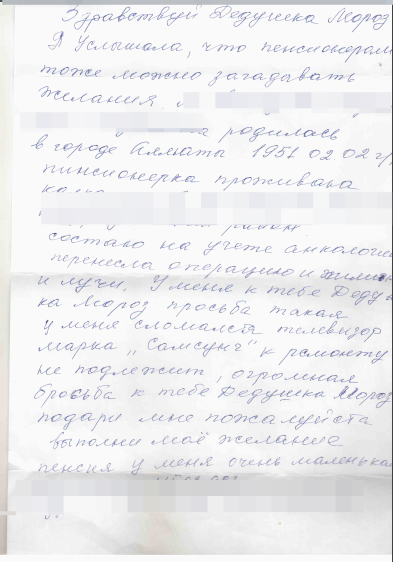 Здравствуй Дедушка Мороз
Я Услышала, что пенсионерам
тоже можно загадывать
желания.
родилась
в городе Алматы 1951 02.02 г/
пинсионерка проживала
район.
состаю на учете анкологие
перенесла операцию и химию
и лучи. У меня к тебе Деду
ка Мороз просьба такая
у меня сломался телевизор
марка „Самсунг" к ремонту
не подлежит, огромная
бросьба к тебе Дедушка Мороз
подари мне пожалуйста
выполни моё желание
пенсия у меня очень маленькая